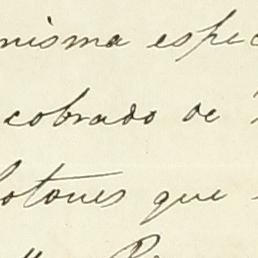 misma espec
cobrado de
botones que